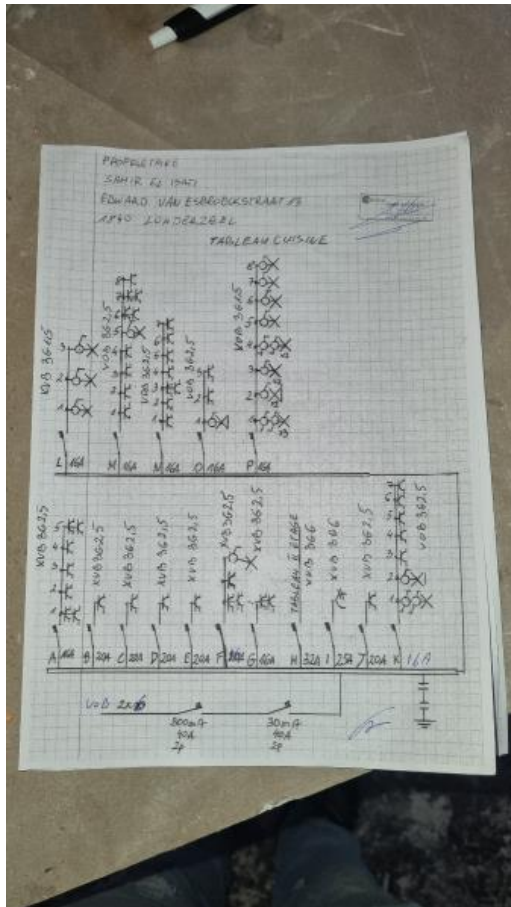 PROPRIETAIRE
SAMIR EL
EDWARD VAN ESBROECKSTRAAT 13
1840 LONDERZEEL
TABLEAU CUISINE
XVB 3G1,5
VOB 3G2,5
VOB 3G2,5
VOB 3G2,5
XVB 3G1,5
L 16A
M 16A
N 16A
O 16A
P 16A
XVB 3G2,5
XVB 3G2,5
XVB 3G2,5
XVB 3G2,5
XVB 3G2,5
XVB 3G2,5
XVB 3G2,5
TABLEAU ETAGE
XVB 3G6
XVB 3G6
XVB 3G2,5
VOB 3G2,5
A 16A
B 20A
C 20A
D 20A
E 20A
F
G 16A
H 32A
I 25A
J 20A
K 16A
VOB
300mA
40A
2P
30mA
40A
2P